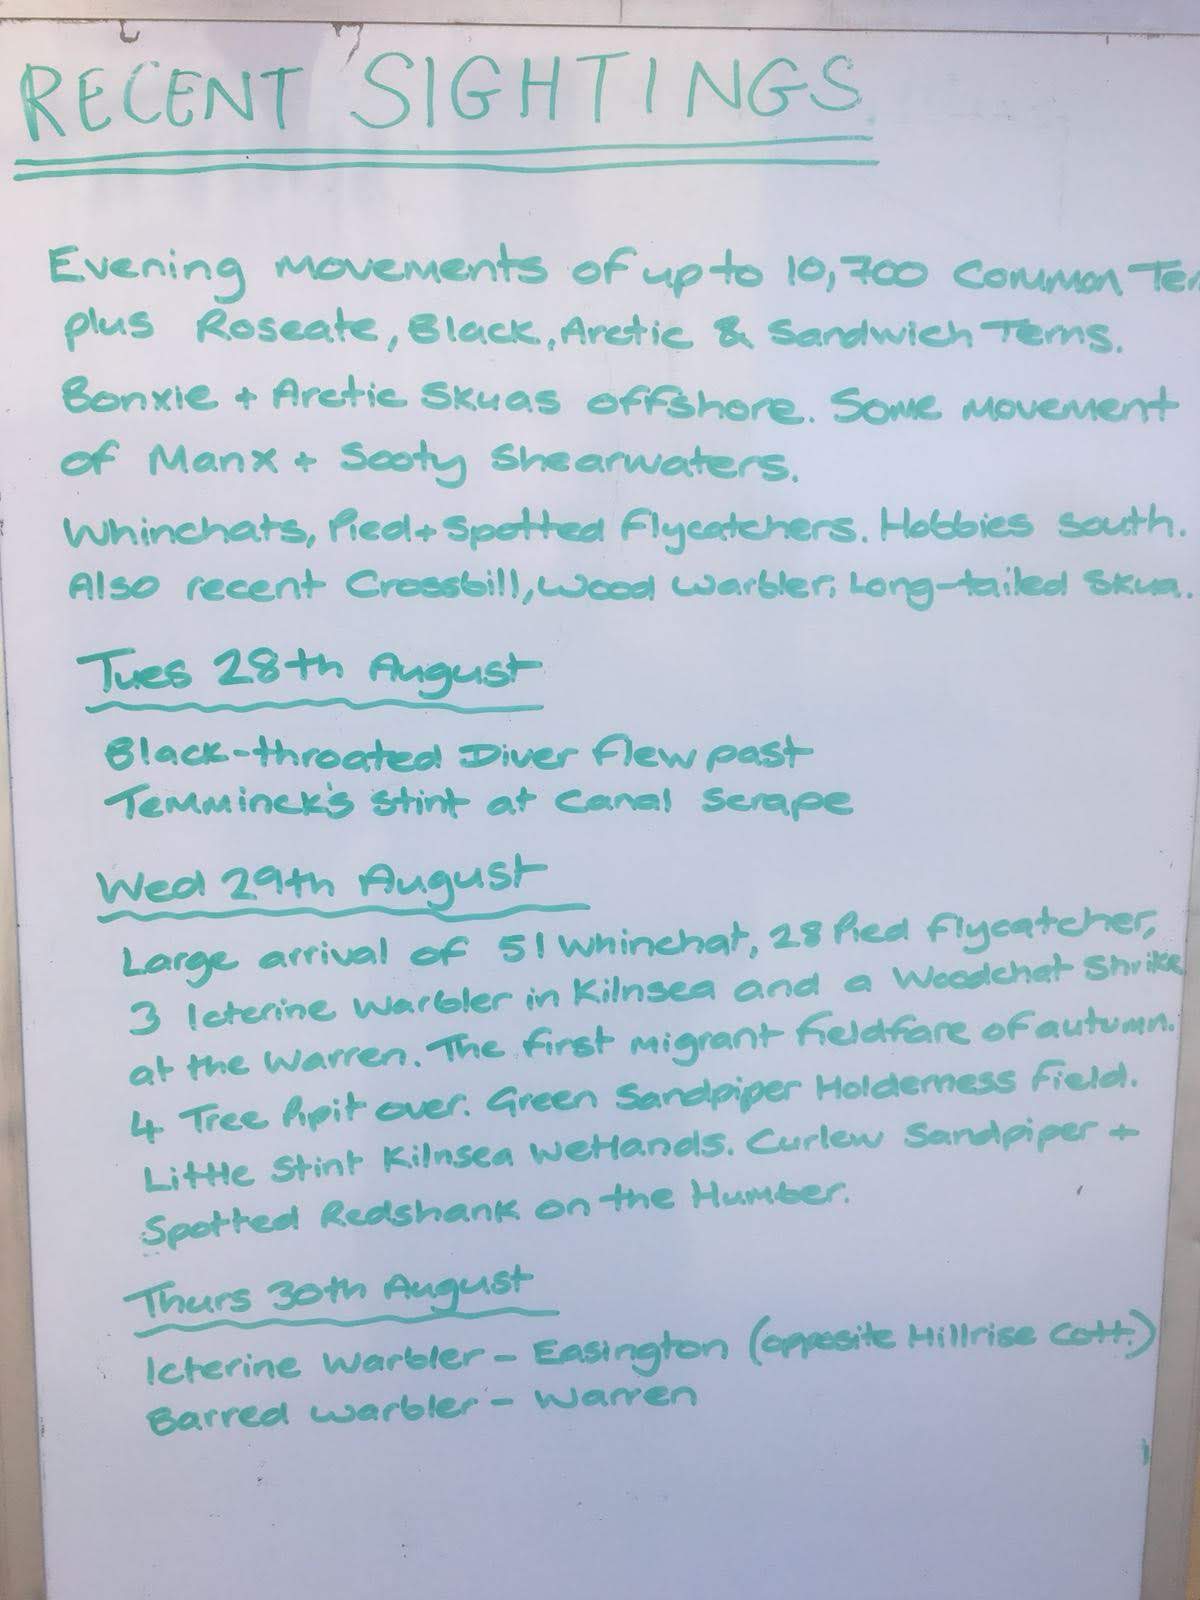 RECENT SIGHTINGS
Evening movements of up to 10,700 Common Ter
plus Roseate, Black, Arctic & Sandwich Terns.
Bonxie + Arctic Skuas offshore. Some movement
of Manx + Sooty Shearwaters.
Whinchats, Pied + Spotted Flycatchers. Hobbies south.
Also recent Crossbill, Wood Warbler, Long-tailed Skua.
Tues 28th August
Black-throated Diver flew past
Temminck's Stint at Canal Scrape
Wed 29th August
Large arrival of 51 Whinchat, 28 Pied Flycatcher,
3 Icterine Warbler in Kilnsea and a Woodchat Shrike
at the Warren. The first migrant fieldfare of autumn.
4 Tree Pipit over. Green Sandpiper Holderness Field.
Little Stint Kilnsea Wetlands. Curlew Sandpiper +
Spotted Redshank on the Humber.
Thurs 30th August
Icterine Warbler - Easington (opposite Hillrise Cott.)
Barred Warbler - Warren